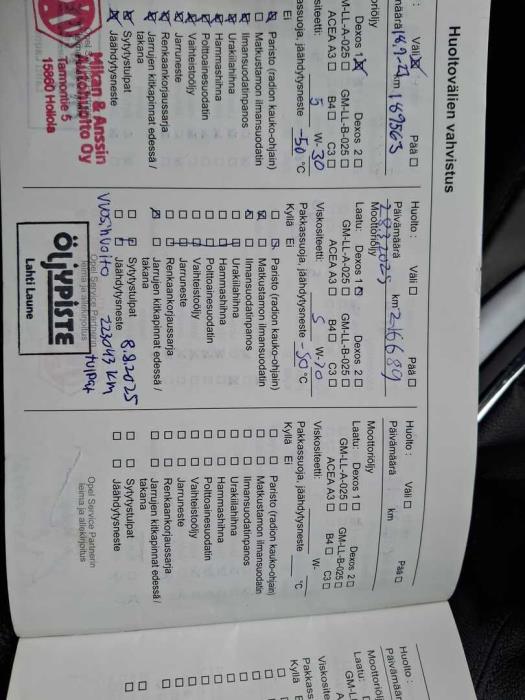 Huoltovälien vahvistus
Väli ☒ Pää ☐
km 189563
Dexos 1 ☒ Dexos 2 ☐
GM-LL-A-025 ☐ GM-LL-B-025 ☐
ACEA A3 ☐ B4 ☐ C3 ☐
5 W-30
jäähdytysneste -50 °C
Ei
☒ Paristo (radion kauko-ohjain)
☐ Matkustamon ilmansuodatin
☒ Ilmansuodatinpanos
☒ Urakiilahihna
☒ Hammashihna
☒ Polttoainesuodatin
☒ Vaihteistoöljy
☒ Jarruneste
☒ Renkaankorjaussarja
☒ Jarrujen kitkapinnat edessä /
takana
☒ Sytytystulpat
☒ Jäähdytysneste
Mikan & Anssin
Autohuolto Oy
Tarmontie 5
15860 Hollola
Huolto : Väli ☐ Pää ☐
Päivämäärä km 216689
Moottoriöljy
Laatu: Dexos 1 ☒ Dexos 2 ☐
GM-LL-A-025 ☐ GM-LL-B-025 ☐
ACEA A3 ☐ B4 ☐ C3 ☐
Viskositeetti: 5 W-20
Pakkassuoja, jäähdytysneste -50 °C
Kyllä Ei
Paristo (radion kauko-ohjain)
Matkustamon ilmansuodatin
Ilmansuodatinpanos
Urakiilahihna
Hammashihna
Polttoainesuodatin
Vaihteistoöljy
Jarruneste
Renkaankorjaussarja
Jarrujen kitkapinnat edessä /
takana
Sytytystulpat 8.8.2025
Jäähdytysneste 223043 km
vuosihuolto tulpat
Opel Service Partnerin
leima ja allekirjoitus
ÖLJYPISTE
Lahti Laune
Huolto : Väli ☐ Pää ☐
Päivämäärä km
Moottoriöljy
Laatu: Dexos 1 ☐ Dexos 2 ☐
GM-LL-A-025 ☐ GM-LL-B-025 ☐
ACEA A3 ☐ B4 ☐ C3 ☐
Viskositeetti: W-
Pakkassuoja, jäähdytysneste °C
Kyllä Ei
☐ ☐ Paristo (radion kauko-ohjain)
☐ ☐ Matkustamon ilmansuodatin
☐ ☐ Ilmansuodatinpanos
☐ ☐ Urakiilahihna
☐ ☐ Hammashihna
☐ ☐ Polttoainesuodatin
☐ ☐ Vaihteistoöljy
☐ ☐ Jarruneste
☐ ☐ Renkaankorjaussarja
☐ ☐ Jarrujen kitkapinnat edessä /
takana
☐ ☐ Sytytystulpat
☐ ☐ Jäähdytysneste
Opel Service Partnerin
leima ja allekirjoitus
Huolto :
Päivämäär
Moottoriöljy
Laatu:
GM-L
Viskosite
Pakkass
Kyllä E